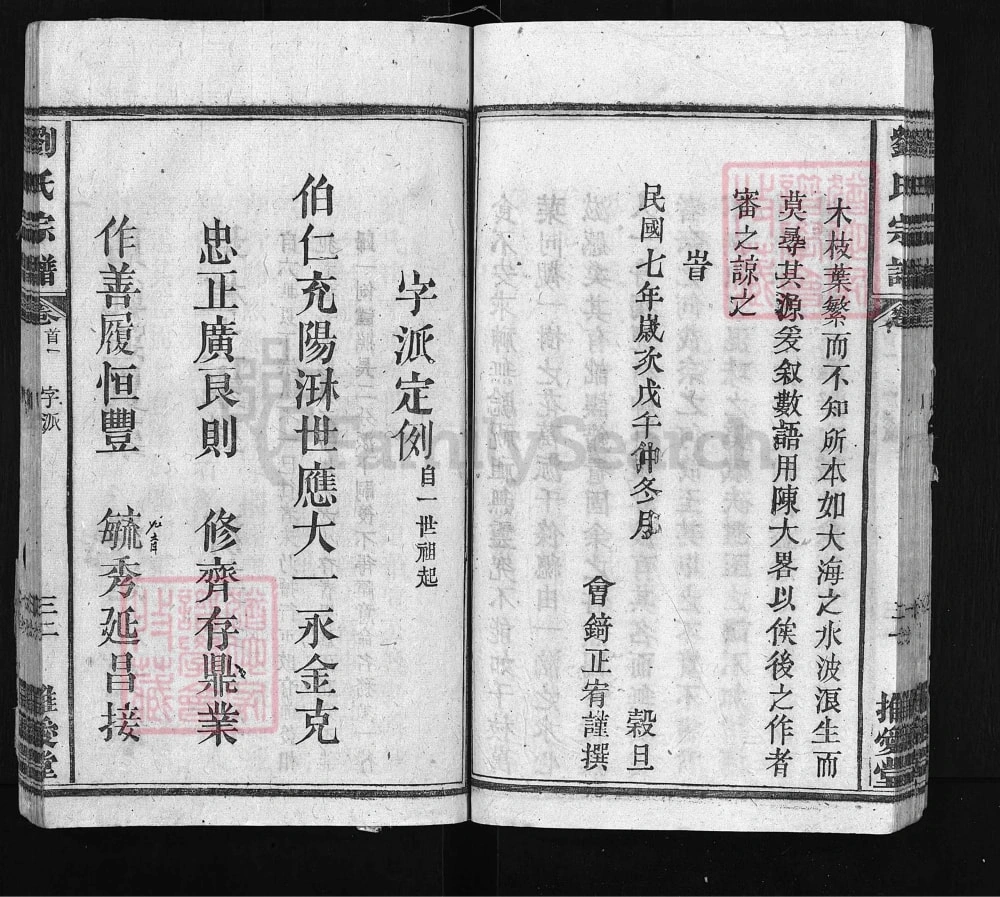 木枝葉繁而不知所本如大海之水波浪生而
莫尋其源爰叙數語用陳大畧以俟後之作者
審之諒之
旹
民國七年歲次戊午仲冬月 穀旦
會錡正宥謹撰
推愛堂
字派定例 自一世祖起
伯仁充陽淋世應大一永金克
忠正廣良則 修齊存鼎業
作善履恒豐 毓秀延昌接
劉氏宗譜 卷首一 字派 三二 推愛堂
FamilySearch